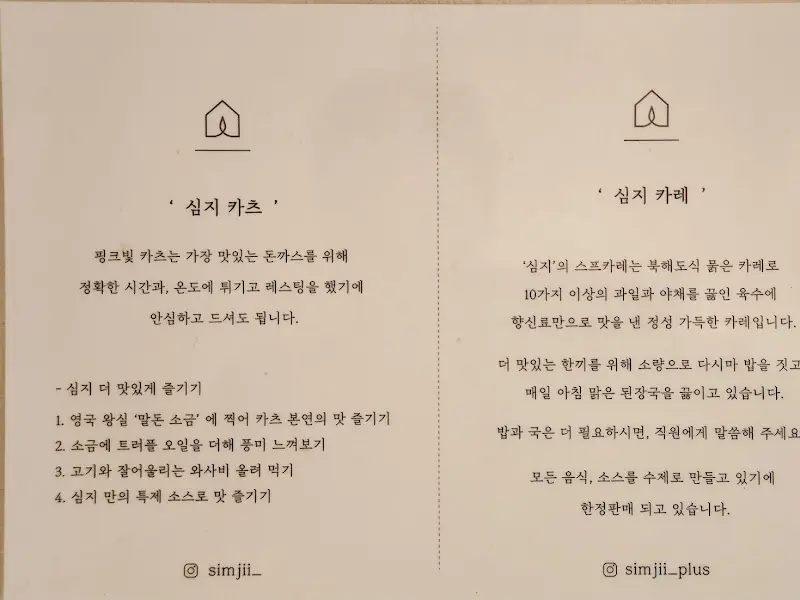 ‘ 심지 카츠 ’
핑크빛 카츠는 가장 맛있는 돈까스를 위해
정확한 시간과, 온도에 튀기고 레스팅을 했기에
안심하고 드셔도 됩니다.
- 심지 더 맛있게 즐기기
1. 영국 왕실 ‘말돈 소금’ 에 찍어 카츠 본연의 맛 즐기기
2. 소금에 트러플 오일을 더해 풍미 느껴보기
3. 고기와 잘어울리는 와사비 올려 먹기
4. 심지 만의 특제 소스로 맛 즐기기
simjii_
‘ 심지 카레 ’
‘심지’의 스프카레는 북해도식 묽은 카레로
10가지 이상의 과일과 야채를 끓인 육수에
향신료만으로 맛을 낸 정성 가득한 카레입니다.
더 맛있는 한끼를 위해 소량으로 다시마 밥을 짓고
매일 아침 맑은 된장국을 끓이고 있습니다.
밥과 국은 더 필요하시면, 직원에게 말씀해 주세요
모든 음식, 소스를 수제로 만들고 있기에
한정판매 되고 있습니다.
simjii_plus